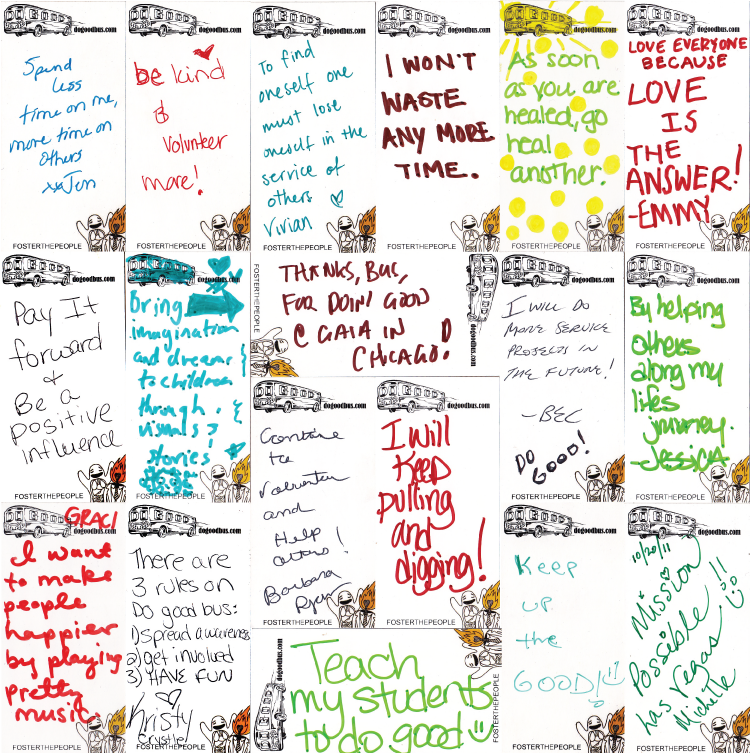 dogoodbus.com
Spend
less
time on me,
more time on
others
xxJen
FOSTERTHEPEOPLE
dogoodbus.com
be kind
&
volunteer
more!
FOSTERTHEPEOPLE
dogoodbus.com
To find
oneself one
must lose
oneself in the
service of
others
Vivian
FOSTERTHEPEOPLE
dogoodbus.com
I WON'T
WASTE
ANY MORE
TIME.
FOSTERTHEPEOPLE
dogoodbus.com
As soon
as you are
healed, go
heal
another.
FOSTERTHEPEOPLE
dogoodbus.com
LOVE EVERYONE
BECAUSE
LOVE
IS
THE
ANSWER!
-EMMY
FOSTERTHEPEOPLE
dogoodbus.com
Pay It
forward
&
Be a
positive
influence
FOSTERTHEPEOPLE
dogoodbus.com
Bring
imagination
and dreams
to children
through
visuals &
stories
FOSTERTHEPEOPLE
dogoodbus.com
THANKS, BUS,
FOR DOIN' GOOD
@ GAIA IN
CHICAGO!
FOSTERTHEPEOPLE
dogoodbus.com
I WILL DO
MORE SERVICE
PROJECTS IN
THE FUTURE!
-BEC
DO GOOD!
FOSTERTHEPEOPLE
dogoodbus.com
By helping
others
along my
lifes
journey.
-Jessica
FOSTERTHEPEOPLE
dogoodbus.com
Continue
to
volunteer
and
Help
others!
Barbara
FOSTERTHEPEOPLE
dogoodbus.com
I will
keep
pulling
and
digging!
FOSTERTHEPEOPLE
dogoodbus.com
GRACI
I want
to make
people
happier
by playing
pretty
music
FOSTERTHEPEOPLE
dogoodbus.com
There are
3 rules on
Do good bus:
1) spread awareness
2) get involved
3) HAVE FUN
Kristy
Crystal
FOSTERTHEPEOPLE
dogoodbus.com
Teach
my students
to do good
FOSTERTHEPEOPLE
dogoodbus.com
Keep
up
the
GOOD!
FOSTERTHEPEOPLE
dogoodbus.com
10/20/11
Mission
Possible!!
Las Vegas
Michelle
FOSTERTHEPEOPLE